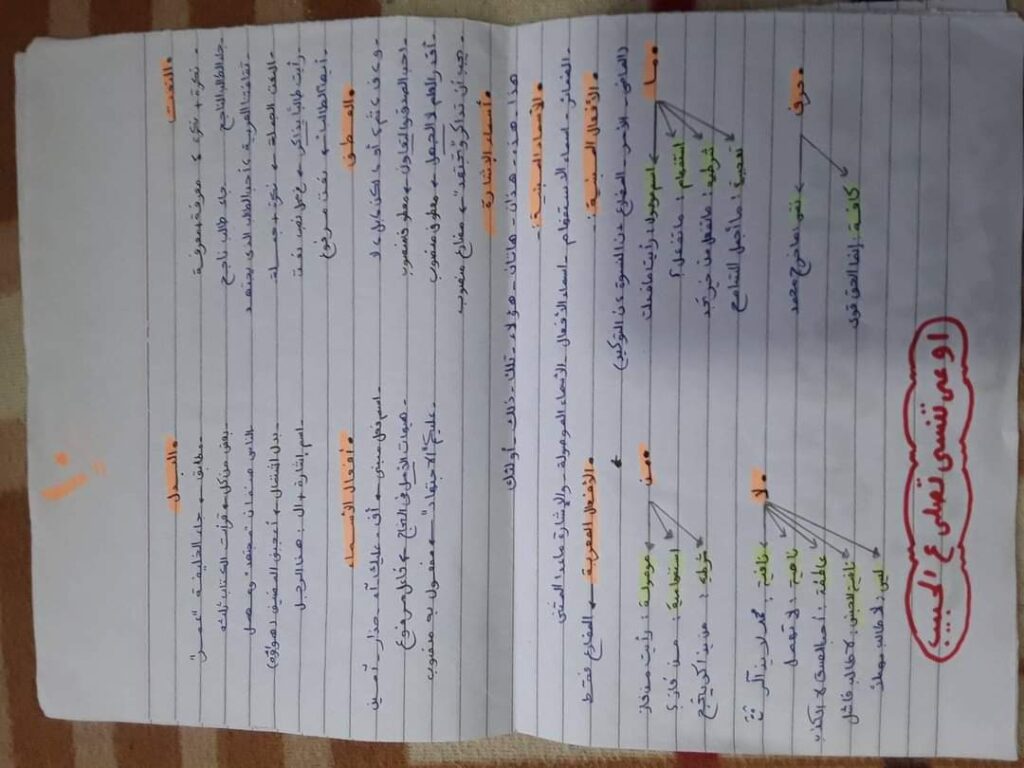 ١٠
• النعت
- نكرة + نكرة & معرفة + معرفة
جاء الطالب الناجح جاء طالب ناجح
تفاءلت العربية & أحب الطالب الذي يجتهد
- النعت الجملة ← نكرة + جملة
- رأيت طالبًا يذاكر ← في محل نصب نعت
أيها الطالب المجتهد نعت مرفوع
• البدل
- مطابق ← جاء الخليفة "عمر"
بعض من كل ← قرأت الكتاب ثلثه
الناس صنفان مجتهد ومهمل
بدل اشتمال ← أعجبني المصيف هواؤه
اسم إشارة + ال هذا الرجل
• العطف
و & ف & ثم & أو & لكن & بل & لا
- أحب الصدق والتعاون ← معطوف منصوب
أقدر العلم لا الجهل ← معطوف منصوب
- يجب أن تذاكر وتجتهد ← مضارع منصوب
• أفعال الأسماء
- اسم فعل مبني ← أف - عليك - آه - حذار - آمين
- هيهات الخمول في النجاح ← فاعل مرفوع
- عليكم الاجتهاد ← مفعول به منصوب
• أسماء الإشارة
هذا - هذه - هذان - هاتان - هؤلاء - تلك - ذلك - أولئك
• الأسماء المبنية :-
- الضمائر - أسماء الاستفهام - أسماء الأفعال - الأسماء الموصولة - والإشارة ما عدا المثنى
• الأفعال المبنية :-
(الماضي - الأمر - المضارع + ن النسوة & ن التوكيد)
• الأفعال المعربة ← المضارع فقط
• ما
اسم موصول : رأيت ما فعلت
استفهام : ما تفعل ؟
شرطية : ما تفعل من خير تجد
تعجبية : ما أجمل التسامح
• من
موصولة : رأيت من فاز
استفهامية : من فاز ؟
شرطية : من يذاكر ينجح
• حرف
نفي : ما خرج محمد
كافة : إنما الحق قوي
• لا
نافية :
ناهية : لا تهمل
عاطفة : أحب الصدق لا الكذب
نافية للجنس : لا طالب فاشل
ليس : لا طالب مهملًا
اوعى تنسى تصلى ع الحبيب ...